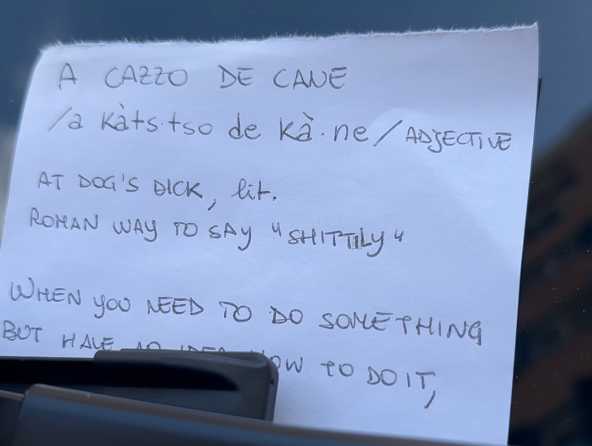 A CAZZO DE CANE
/a kàts·tso de kà·ne/ ADJECTIVE
AT DOG'S DICK, lit.
ROMAN WAY TO SAY "SHITTILY"
WHEN YOU NEED TO DO SOMETHING
BUT HAVE NO IDEA HOW TO DO IT,